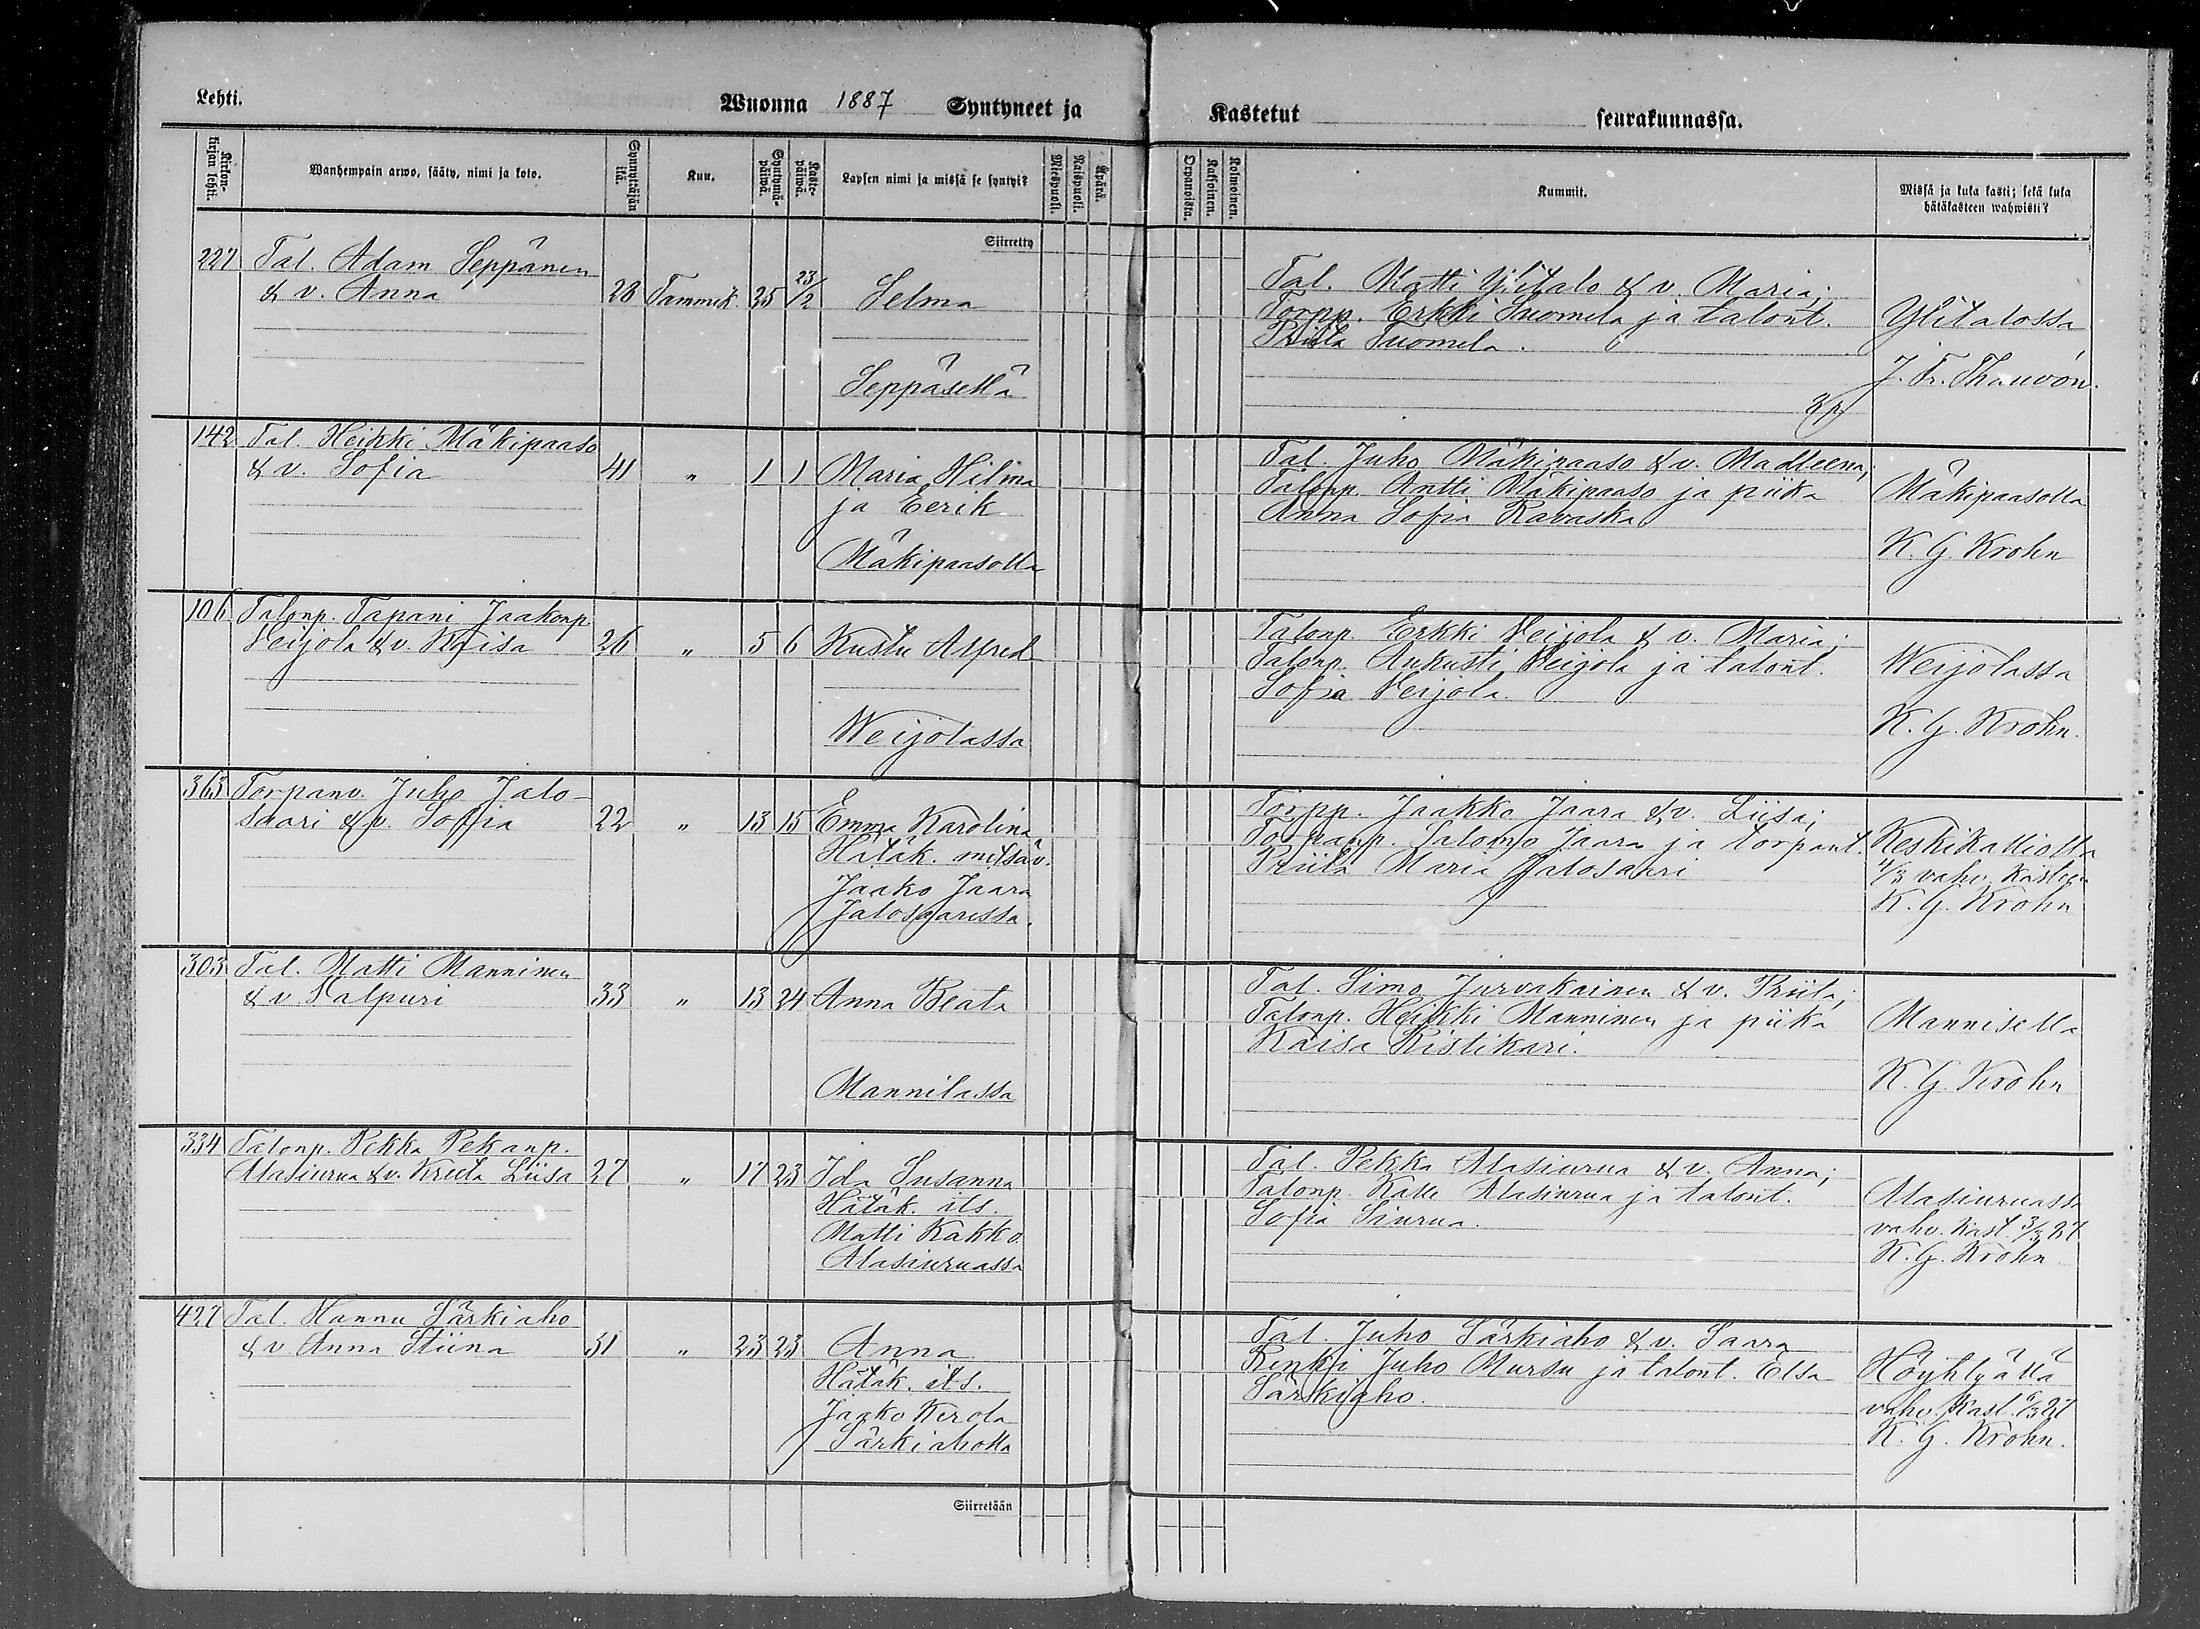 Lehti.
Wuonna 1887 Syntyneet ja Kastetut seurakunnassa.
Kirkonkirjan lehti.
Wanhempain arwo, sääty, nimi ja koto.
Synnyttäjän ikä.
Kuu.
Syntymäpäiwä.
Kastepäiwä.
Lapsen nimi ja missä se syntyi?
Miespuoli.
Naispuoli.
Äpärä.
Orpanoista.
Kaksoinen.
Kolmoinen.
Kummit.
Missä ja kuka kasti; sekä kuka
hätäkasteen wahwisti?
Siirretty
227 Tal. Adam Seppänen
& v. Anna 28 Tammik. 25 23/2 Selma
Seppäsellä
Tal. Matti Ylitalo & v. Maria;
Torpp. Erkki Suomela ja talont.
Priita Suomela.
Ylitalossa
J. Fr. Thauvón.
142 Tal. Heikki Mäkipaaso
& v. Sofia 41 " 1 1 Maria Hilma
ja Eerik
Mäkipaasolla
Tal. Juho Mäkipaaso & v. Madleena;
Talonp. Antti Mäkipaaso ja piika
Anna Sofia Ravaska
Mäkipaasolla
K. G. Krohn
106 Talonp. Tapani Jaakonp.
Veijola & v. Kaisa 26 " 5 6 Kustu Alfred
Weijolassa
Talonp. Erkki Veijola & v. Maria;
Talonp. Aukusti Veijola ja talont.
Sofia Veijola.
Weijolassa
K. G. Krohn.
363 Torpanv. Juho Jalo-
saari & v. Sofia 22 " 13 15 Emma Karolina
Hätäk. metsäv.
Jaako Jaara
Jalosaaressa.
Torpp. Jaakko Jaara & v. Liisa;
Torpanp. Salomo Jaara ja torpant.
Priita Maria Jalosaari
Keskikalliolla
4/3 vahv. kasteen
K. G. Krohn
303 Tal. Matti Manninen
& v Valpuri 33 " 13 24 Anna Beata
Mannilassa
Tal. Simo Jurvakainen & v. Priita;
Talonp. Heikki Manninen ja piika
Kaisa Ristikari.
Mannisella
K. G. Krohn
334 Talonp. Pekka Pekanp.
Alasiurua & v. Kreeta Liisa 27 " 17 23 Ida Susanna
Hätäk. its.
Matti Kakko.
Alasiuruassa
Tal. Pekka Alasiurua & v. Anna;
Talonp. Kalle Alasiurua ja talont.
Sofia Siurua.
Alasiuruassa
vahv. kast. 3/3 87
K. G. Krohn
427 Tal. Hannu Särkiaho
& v Anna Stiina 31 " 23 23 Anna
Hätäk. its.
Jaako Kerola
Särkiaholla
Tal. Juho Särkiaho & v. Saara
Renki Juho Mursu ja talont. Elsa
Särkiaho.
Höyhtyällä
vahv. kast. 6/3 87
K. G. Krohn.
Siirretään